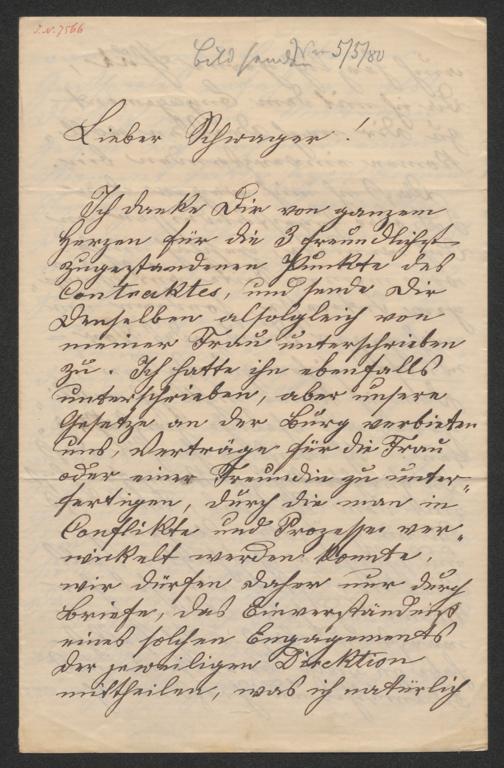 J.N. 7566
Bild senden Wien 5/5/80
Lieber Schwager!
Ich danke Dir von ganzem
Herzen für die 3 freundlichst
zugestandenen Punkte des
Contraktes, und sende Dir
Denselben alsogleich von
meiner Frau unterschrieben
zu. Ich hatte ihn ebenfalls
unterschrieben, aber unsere
Gesetze an der Burg verbieten
uns, Verträge für die Frau
oder einer Freundin zu unter-
fertigen, durch die man in
Conflikte und Prozesse ver-
wickelt werden könnte,
wir dürfen daher nur durch
Briefe, das Einverständniß
eines solchen Engagements
der jeweiligen Direktion
mittheilen, was ich natürlich